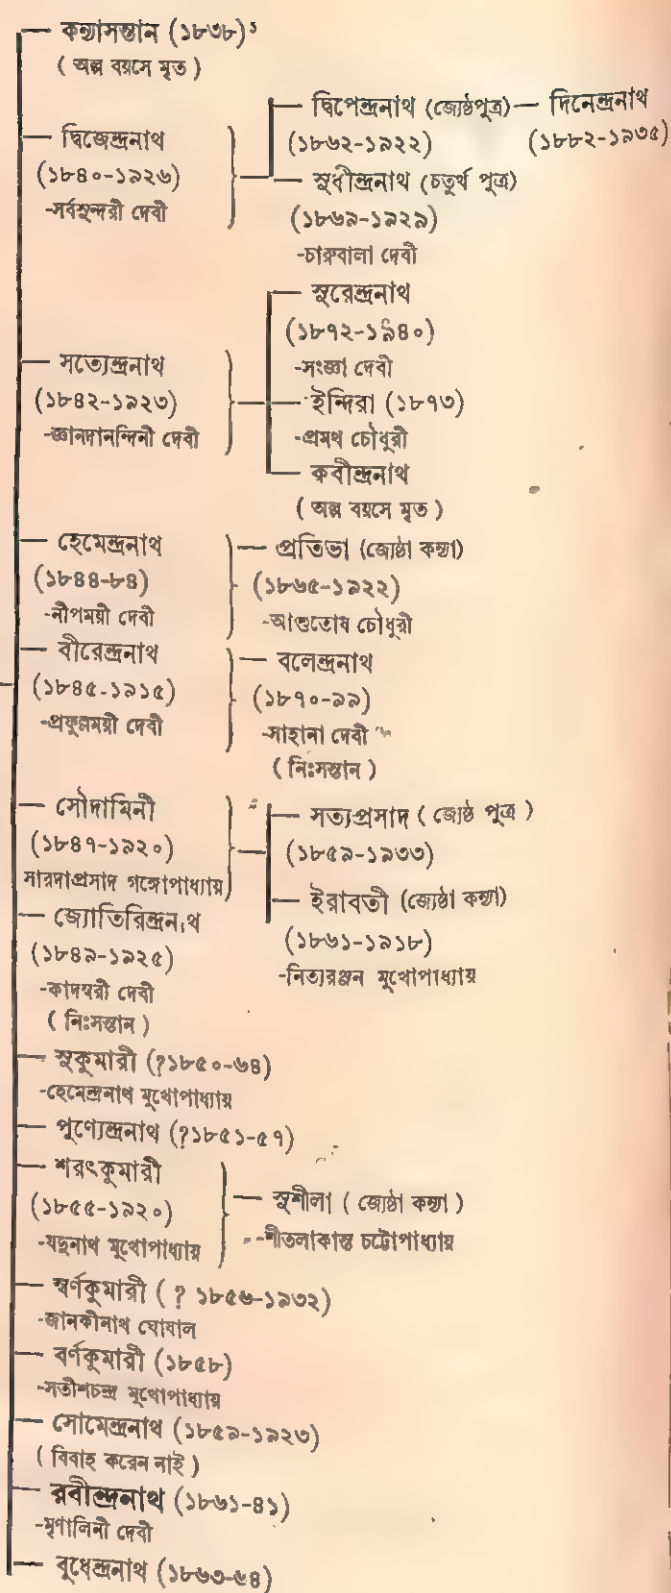 কন্যাসন্তান (১৮৩৮)¹
( অল্প বয়সে মৃত )
দ্বিজেন্দ্রনাথ
(১৮৪০-১৯২৬)
-সর্বসুন্দরী দেবী
দ্বিপেন্দ্রনাথ (জ্যেষ্ঠপুত্র) — দিনেন্দ্রনাথ
(১৮৬২-১৯২২) (১৮৮২-১৯৩৫)
সুধীন্দ্রনাথ (চতুর্থ পুত্র)
(১৮৬৯-১৯২৯)
-চারুবালা দেবী
সত্যেন্দ্রনাথ
(১৮৪২-১৯২৩)
-জ্ঞানদানন্দিনী দেবী
সুরেন্দ্রনাথ
(১৮৭২-১৯৪০)
-সংজ্ঞা দেবী
ইন্দিরা (১৮৭৩)
-প্রমথ চৌধুরী
কবীন্দ্রনাথ
( অল্প বয়সে মৃত )
হেমেন্দ্রনাথ
(১৮৪৪-৮৪)
-নীপময়ী দেবী
প্রতিভা (জ্যেষ্ঠা কন্যা)
(১৮৬৫-১৯২২)
-আশুতোষ চৌধুরী
বীরেন্দ্রনাথ
(১৮৪৫-১৯১৫)
-প্রফুল্লময়ী দেবী
বলেন্দ্রনাথ
(১৮৭০-৯৯)
-সাহানা দেবী
( নিঃসন্তান )
সৌদামিনী
(১৮৪৭-১৯২০)
সারদাপ্রসাদ গঙ্গোপাধ্যায়
সত্যপ্রসাদ ( জ্যেষ্ঠ পুত্র )
(১৮৫৯-১৯৩৩)
ইরাবতী (জ্যেষ্ঠা কন্যা)
(১৮৬১-১৯১৮)
-নিত্যরঞ্জন মুখোপাধ্যায়
জ্যোতিরিন্দ্রনাথ
(১৮৪৯-১৯২৫)
-কাদম্বরী দেবী
( নিঃসন্তান )
সুকুমারী (?১৮৫০-৬৪)
-হেমেন্দ্রনাথ মুখোপাধ্যায়
পুণ্যেন্দ্রনাথ (?১৮৫১-৫৭)
শরৎকুমারী
(১৮৫৫-১৯২০)
-যদুনাথ মুখোপাধ্যায়
সুশীলা ( জ্যেষ্ঠা কন্যা )
-শীতলাকান্ত চট্টোপাধ্যায়
স্বর্ণকুমারী ( ? ১৮৫৬-১৯৩২)
-জানকীনাথ ঘোষাল
বর্ণকুমারী (১৮৫৮)
-সতীশচন্দ্র মুখোপাধ্যায়
সোমেন্দ্রনাথ (১৮৫৯-১৯২৩)
( বিবাহ করেন নাই )
রবীন্দ্রনাথ (১৮৬১-৪১)
-মৃণালিনী দেবী
বুধেন্দ্রনাথ (১৮৬৩-৬৪)